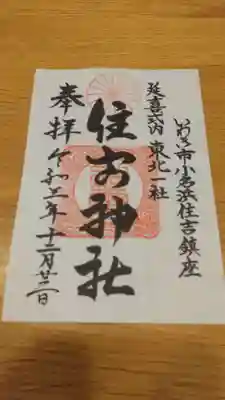 いわき市小名浜住吉鎮座
延喜式内 東北一社
住吉神社
奉拝
令和二年十二月廿二日